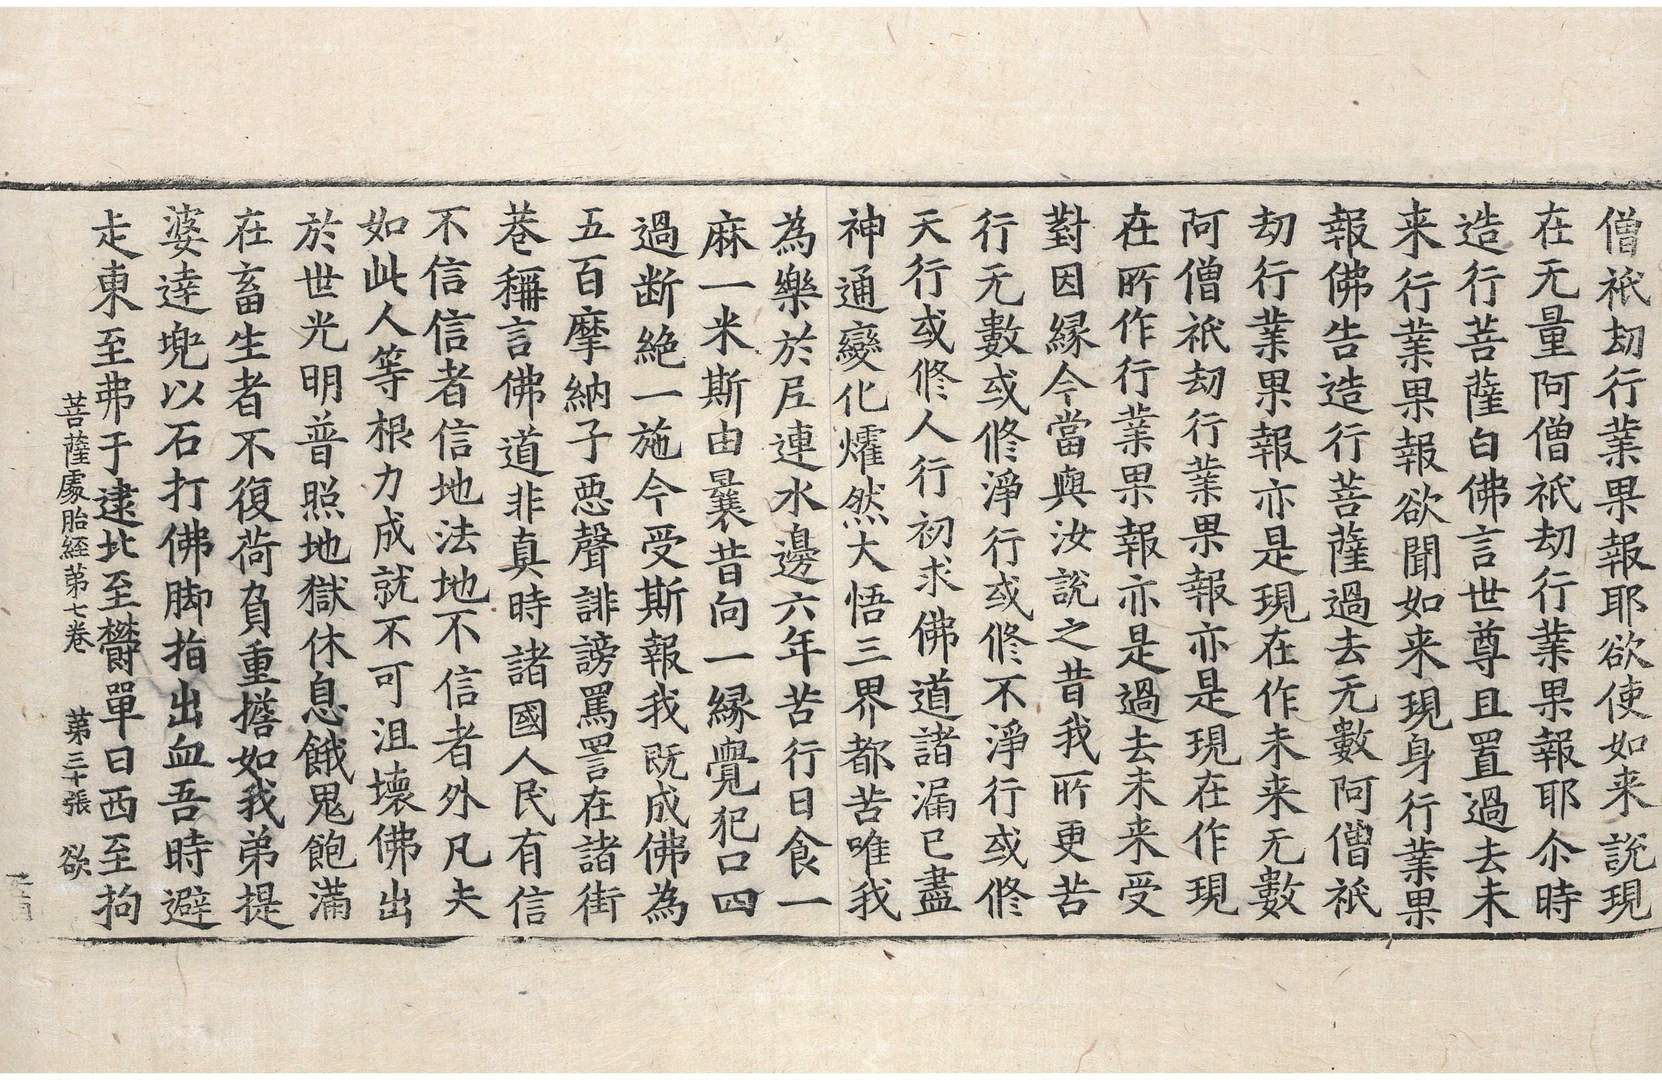 僧祇劫行業果報耶欲使如来說現
在无量阿僧祇劫行業果報耶尒時
造行菩薩白佛言世尊且置過去未
来行業果報欲聞如来現身行業果
報佛告造行菩薩過去无數阿僧祇
劫行業果報亦是現在作未来无數
阿僧祇劫行業果報亦是現在作現
在所作行業果報亦是過去未来受
對因縁今當與汝說之昔我所更苦
行无數或修淨行或修不淨行或修
天行或修人行初求佛道諸漏已盡
神通變化燿然大悟三界都苦唯我
為樂於尼連水邊六年苦行日食一
麻一米斯由曩昔向一縁覺犯口四
過断絶一施今受斯報我既成佛為
五百摩納子惡聲誹謗罵詈在諸街
巷稱言佛道非真時諸國人民有信
不信信者信地法地不信者外凡夫
如此人等根力成就不可沮壞佛出
於世光明普照地獄休息餓鬼飽滿
在畜生者不復荷負重擔如我弟提
婆達兜以石打佛脚指出血吾時避
走東至弗于逮北至欝單曰西至拘
菩薩處胎経苐七卷 苐三十張 欲